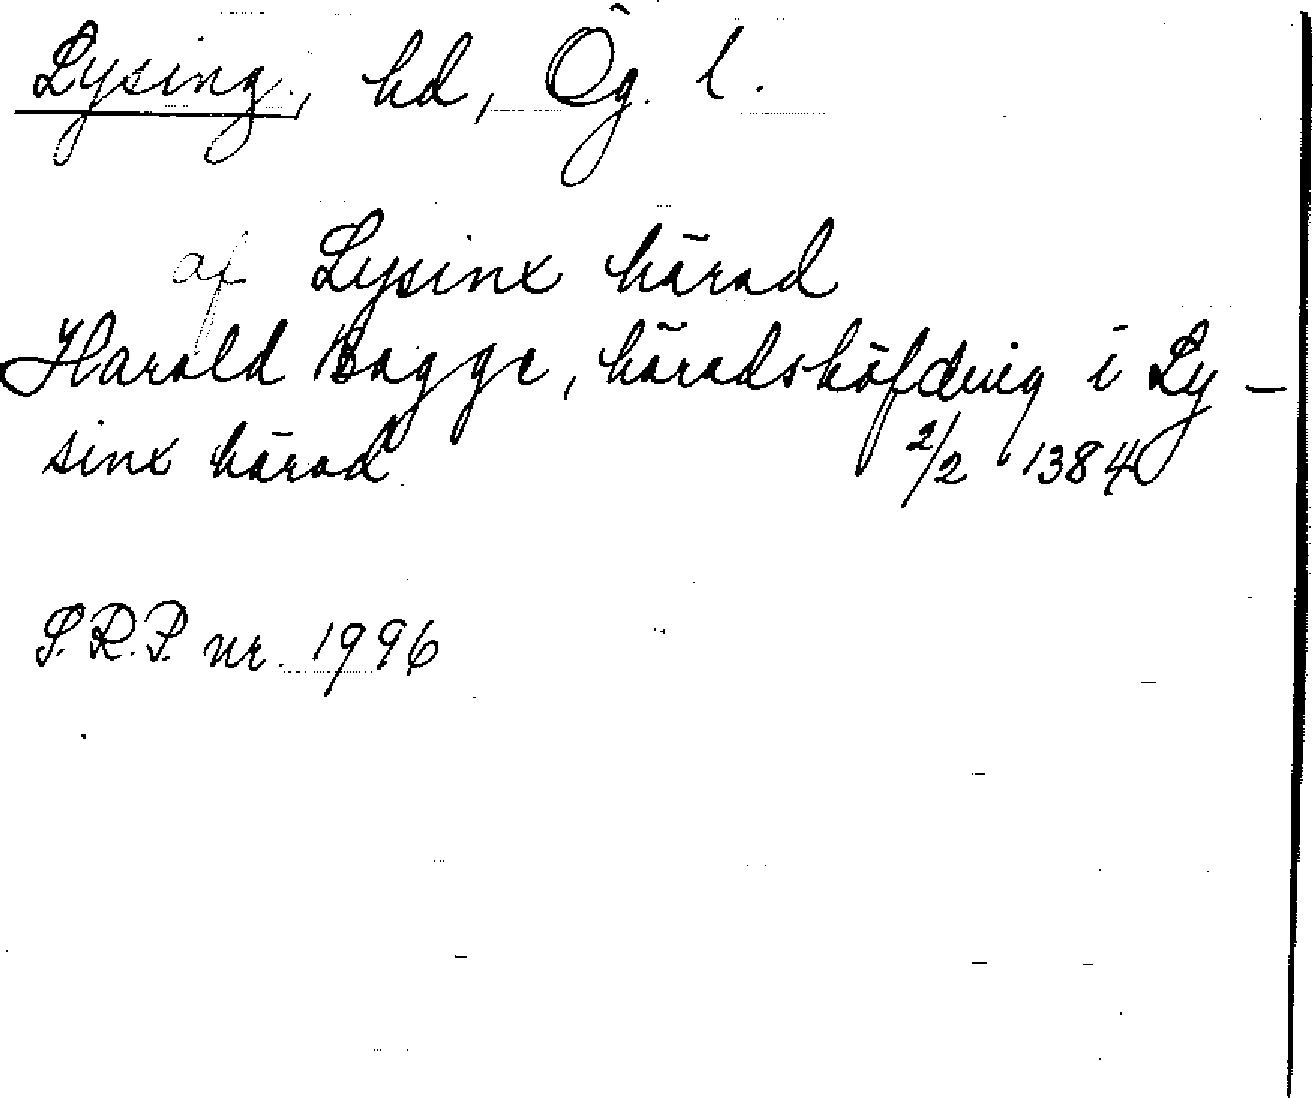 Lysing, hd, Ög. l.
af Lysinx härad
Harald Bagge, häradshöfding i Ly-
sinx härad 2/2 1384
S.R.P. nr. 1996